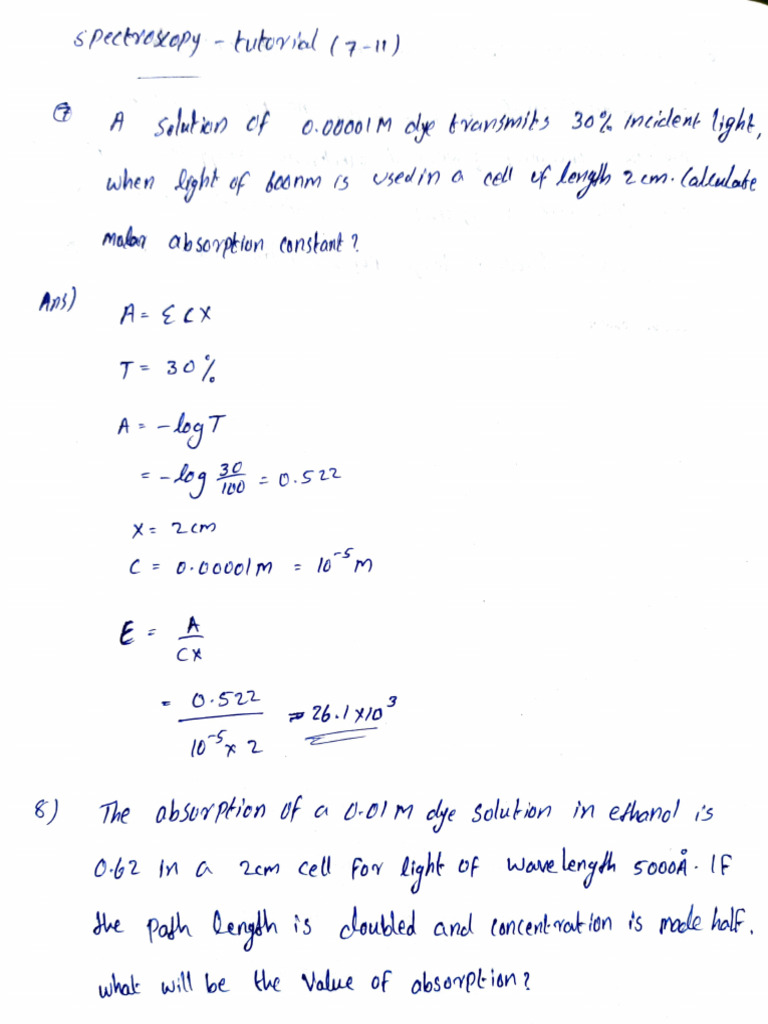 spectroscopy - tutorial (7-11)
⑦ A solution of 0.00001M dye transmits 30% incident light,
when light of 600nm is used in a cell of length 2cm. Calculate
molar absorption constant?
Ans)
A = ƐCX
T = 30%
A = -logT
= -log 30/100 = 0.522
X = 2cm
C = 0.00001M = 10⁻⁵M
Ɛ = A/CX
= 0.522/10⁻⁵x2 = 26.1x10³
8) The absorption of a 0.01M dye solution in ethanol is
0.62 in a 2cm cell for light of wavelength 5000Å. If
the path length is doubled and concentration is made half.
what will be the value of absorption?